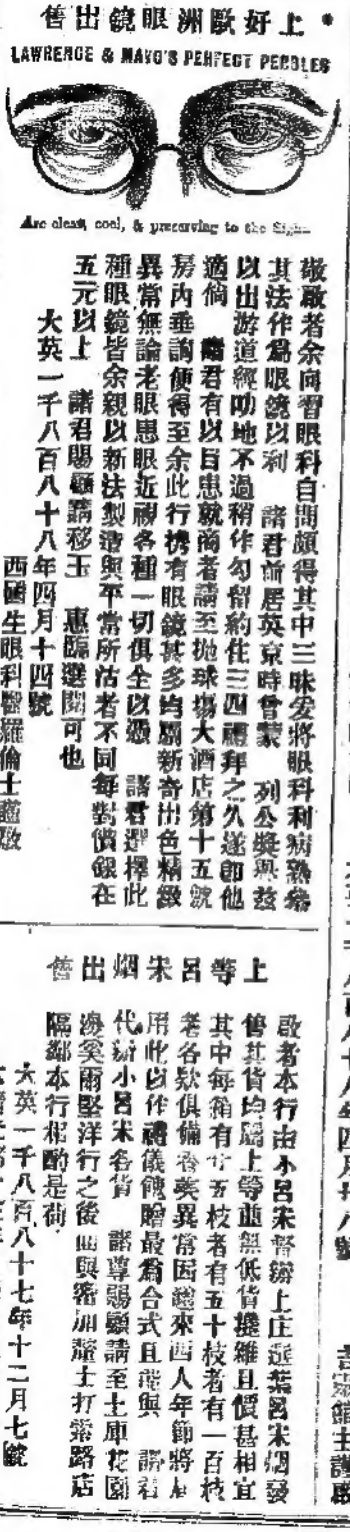 上好歐洲眼鏡出售
LAWRENCE & MAYO'S PERFECT PEBBLES
Are clear, cool, & preserving to the Sight.
敬啟者余向習眼科自問頗得其中三昧爰將眼科利病熟參
其法作爲眼鏡以利 諸君前居英京時曾蒙 列公獎與茲
以出游道經叻地不過稍作勾留約住三四禮拜之久遂卽他
適倘 諸君有以目患就商者請至抛球塲大酒店第十五號
房內垂詢便得至余此行携有眼鏡甚多均屬新奇出色精緻
異常無論老眼患眼近視各種一切俱全以憑 諸君選擇此
種眼鏡皆余親以新法製造與平常所沽者不同每對價銀在
五元以上 諸君賜顧請移玉 惠臨選閱可也
大英一千八百八十八年四月十四號
西國生眼科醫羅倫士謹啟
上等呂宋烟出售
啟者本行由小呂宋督辦上庄葉呂宋烟發
售其貨均屬上等並無低貨攙雜且價甚相宜
其中每箱有廿五枝者有五十枝者有一百枝
者各欵俱備卷裝異常因邇來西人年節將屆
用此以作禮儀餽贈最爲合式且能與 諸君
代辦小呂宋各貨 諸尊賜顧請至土庫花園
海奚爾堅洋行之後面與密加釐士打當路店
隔鄰本行相酌是荷
大英一千八百八十七年十二月七號